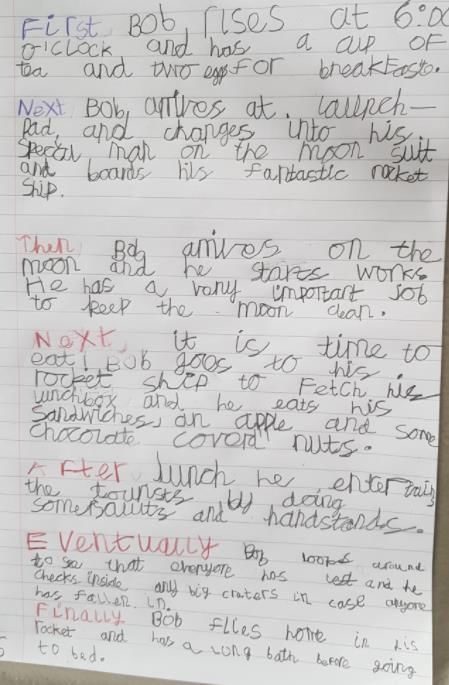 First Bob rises at 6:00
O'Clock and has a cup of
tea and two eggs for breakfasto.
Next Bob, arrives at. launch-
Pad, and changes into his
Special man on the moon suit
and boards his fantastic rocket
ship.
Then Bob arrives on the
moon and he starts works.
He has a very important Job
to keep the moon clean.
Next, it is time to
eat! Bob goos to his
rocket ship to Fetch his
lunchbox and he eats his
Sandwiches, an apple and some
chocolate coverd nuts.
After lunch he entertains
the tourists by doing
somersaults and handstands.
Eventually Bob looks around
to see that everyone has left and he
checks inside any big craters in case anyone
has fallen in.
Finally Bob flies home in his
rocket and has a long bath before going
to bed.